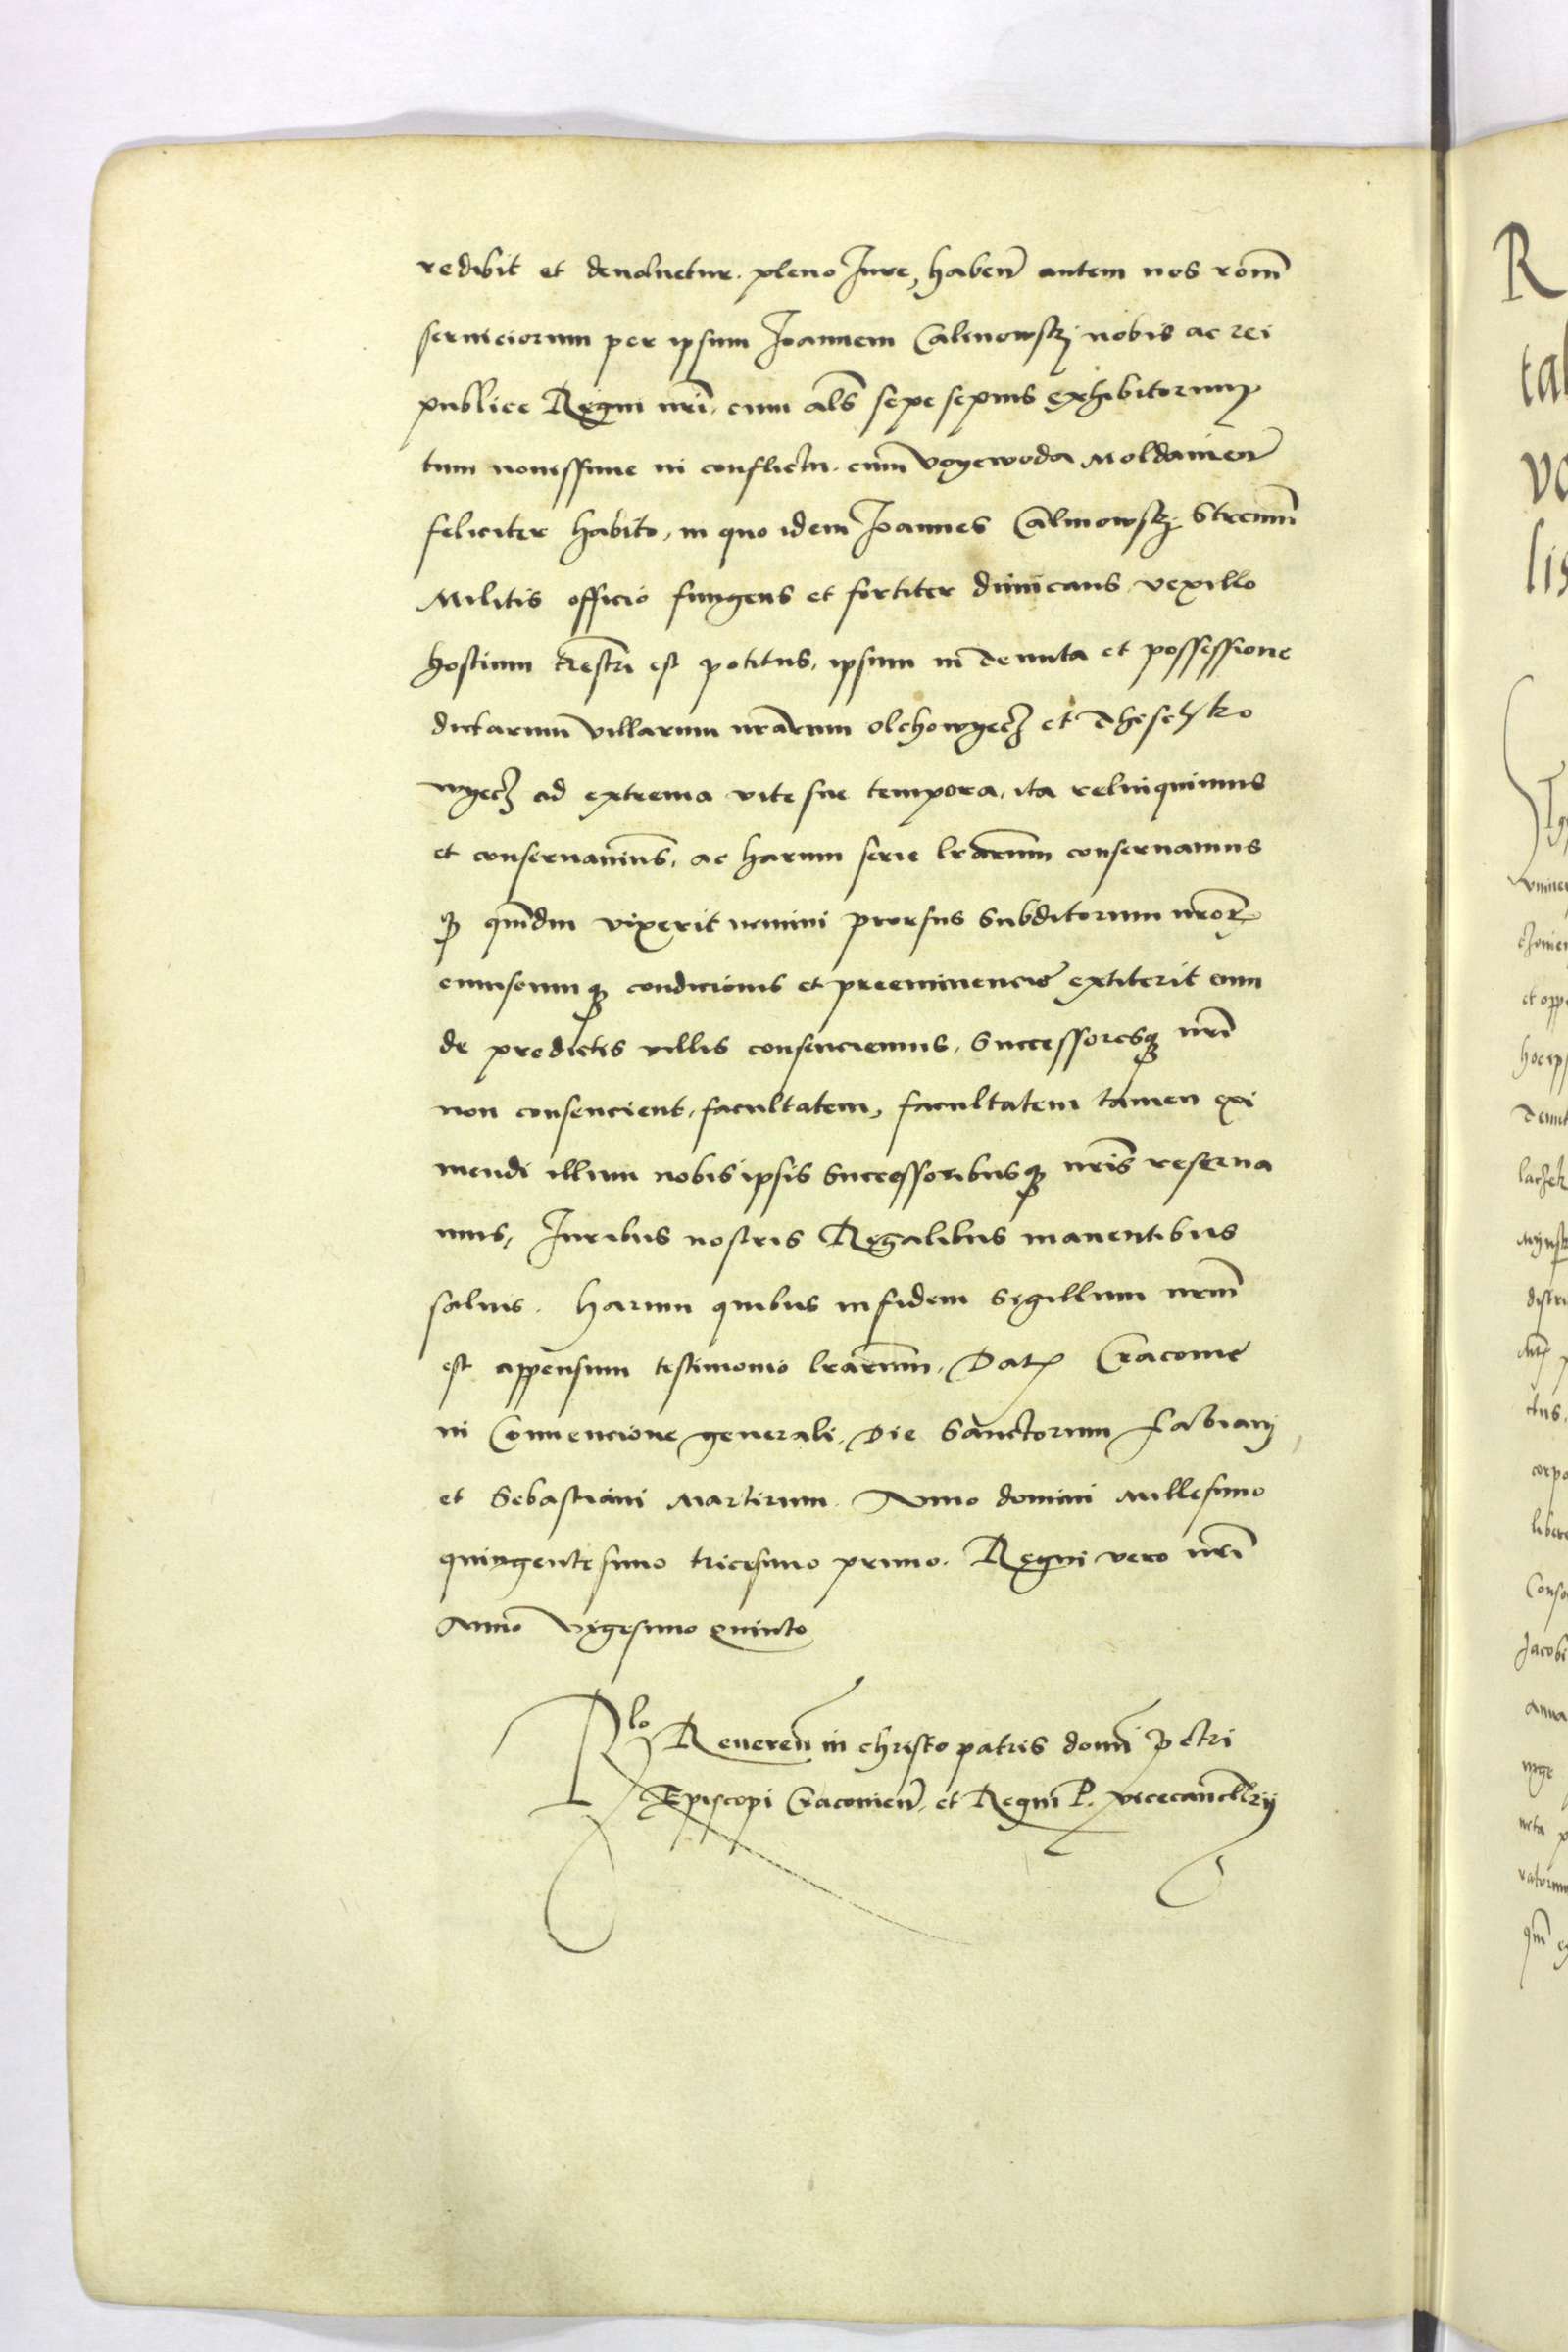 redibit et devoluetur. pleno Jure, haben̄ autem nos rom̄
serviciorum per ipsum Joannem Calinowskj nobis ac rei
publice Regni nr̄i, cum als̄ sepe sepius exhibitorum,
tum novissime in conflictu. cum̄ voyewoda Moldavien̄
feliciter habito, in quo idem Joannes Calinowskj Strenui
Militis officio fungens et fortiter dimicans vexillo
hostium est potitus, ipsum in tenuta et possessione
dictarum villarum nr̄arum olchowyecz et
wyecz ad extrema vite sue tempora, ita relinquimus
et conservamus, ac harum serie lr̄arum conservamus
qͅ quādiu vixerit nemini prorsus Subditorum nr̄oꝝ
cuiuscumqͅ condicionis et preeminencie extiterit eum
de predictis villis consenciemus, Successoresqͅ nr̄i
non consencient, facultatem, facultatem tamen exi
mendi illum nobis ipsis Successoribusqͅ nr̄is reserva
mus, Juribus nostris Regalibus manentibus
salvis. Harum quibus in fidem Sigillum nr̄m
est appensum testimonio lr̄arum, Datꝫ Cracovie
in Convencione generali, Die Sanctorum Fabianj
et Sebastiani Martirum. Anno domini Millesimo
quingentesimo tricesimo primo. Regni vero nr̄i
Anno vigesimo quinto
Rlo Reveren̄ in christo patris domī Petri
Episcopi Cracovien̄, et Regni P. vicecancllrij